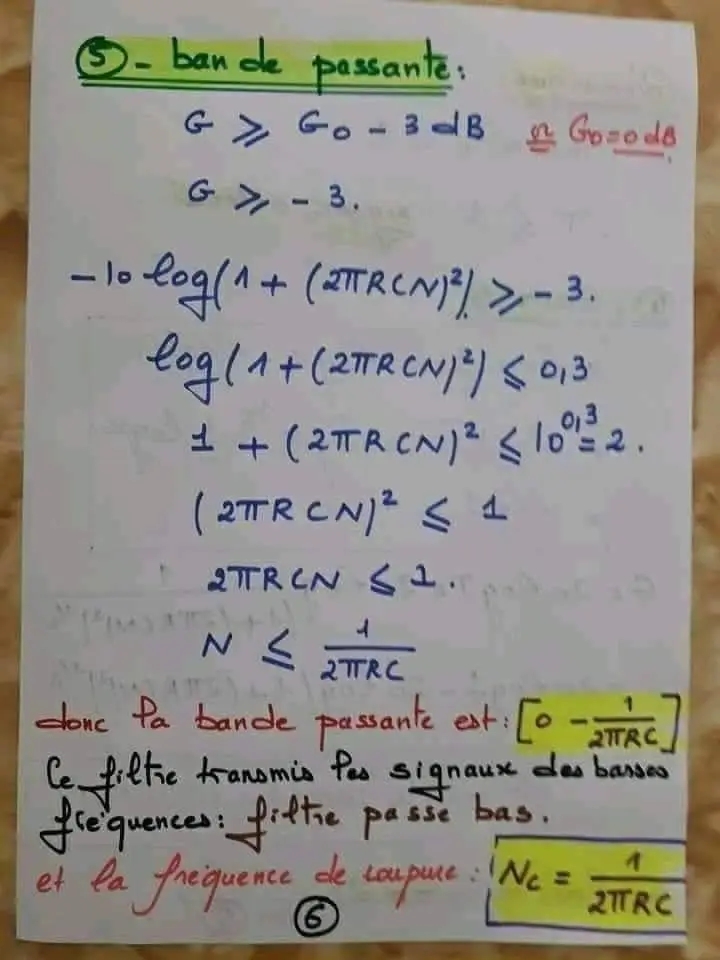 5 - bande passante:
G ⩾ G₀ - 3 dB or G₀ = 0 dB
G ⩾ - 3.
-10 log(1 + (2πRCN)²) ⩾ - 3.
log(1 + (2πRCN)²) ⩽ 0,3
1 + (2πRCN)² ⩽ 10^0,3 = 2.
(2πRCN)² ⩽ 1
2πRCN ⩽ 1.
N ⩽ 1/2πRC
donc la bande passante est: [0 - 1/2πRC]
Ce filtre transmis les signaux des basses
fréquences: filtre passe bas.
et la fréquence de coupure: Nc = 1/2πRC
6